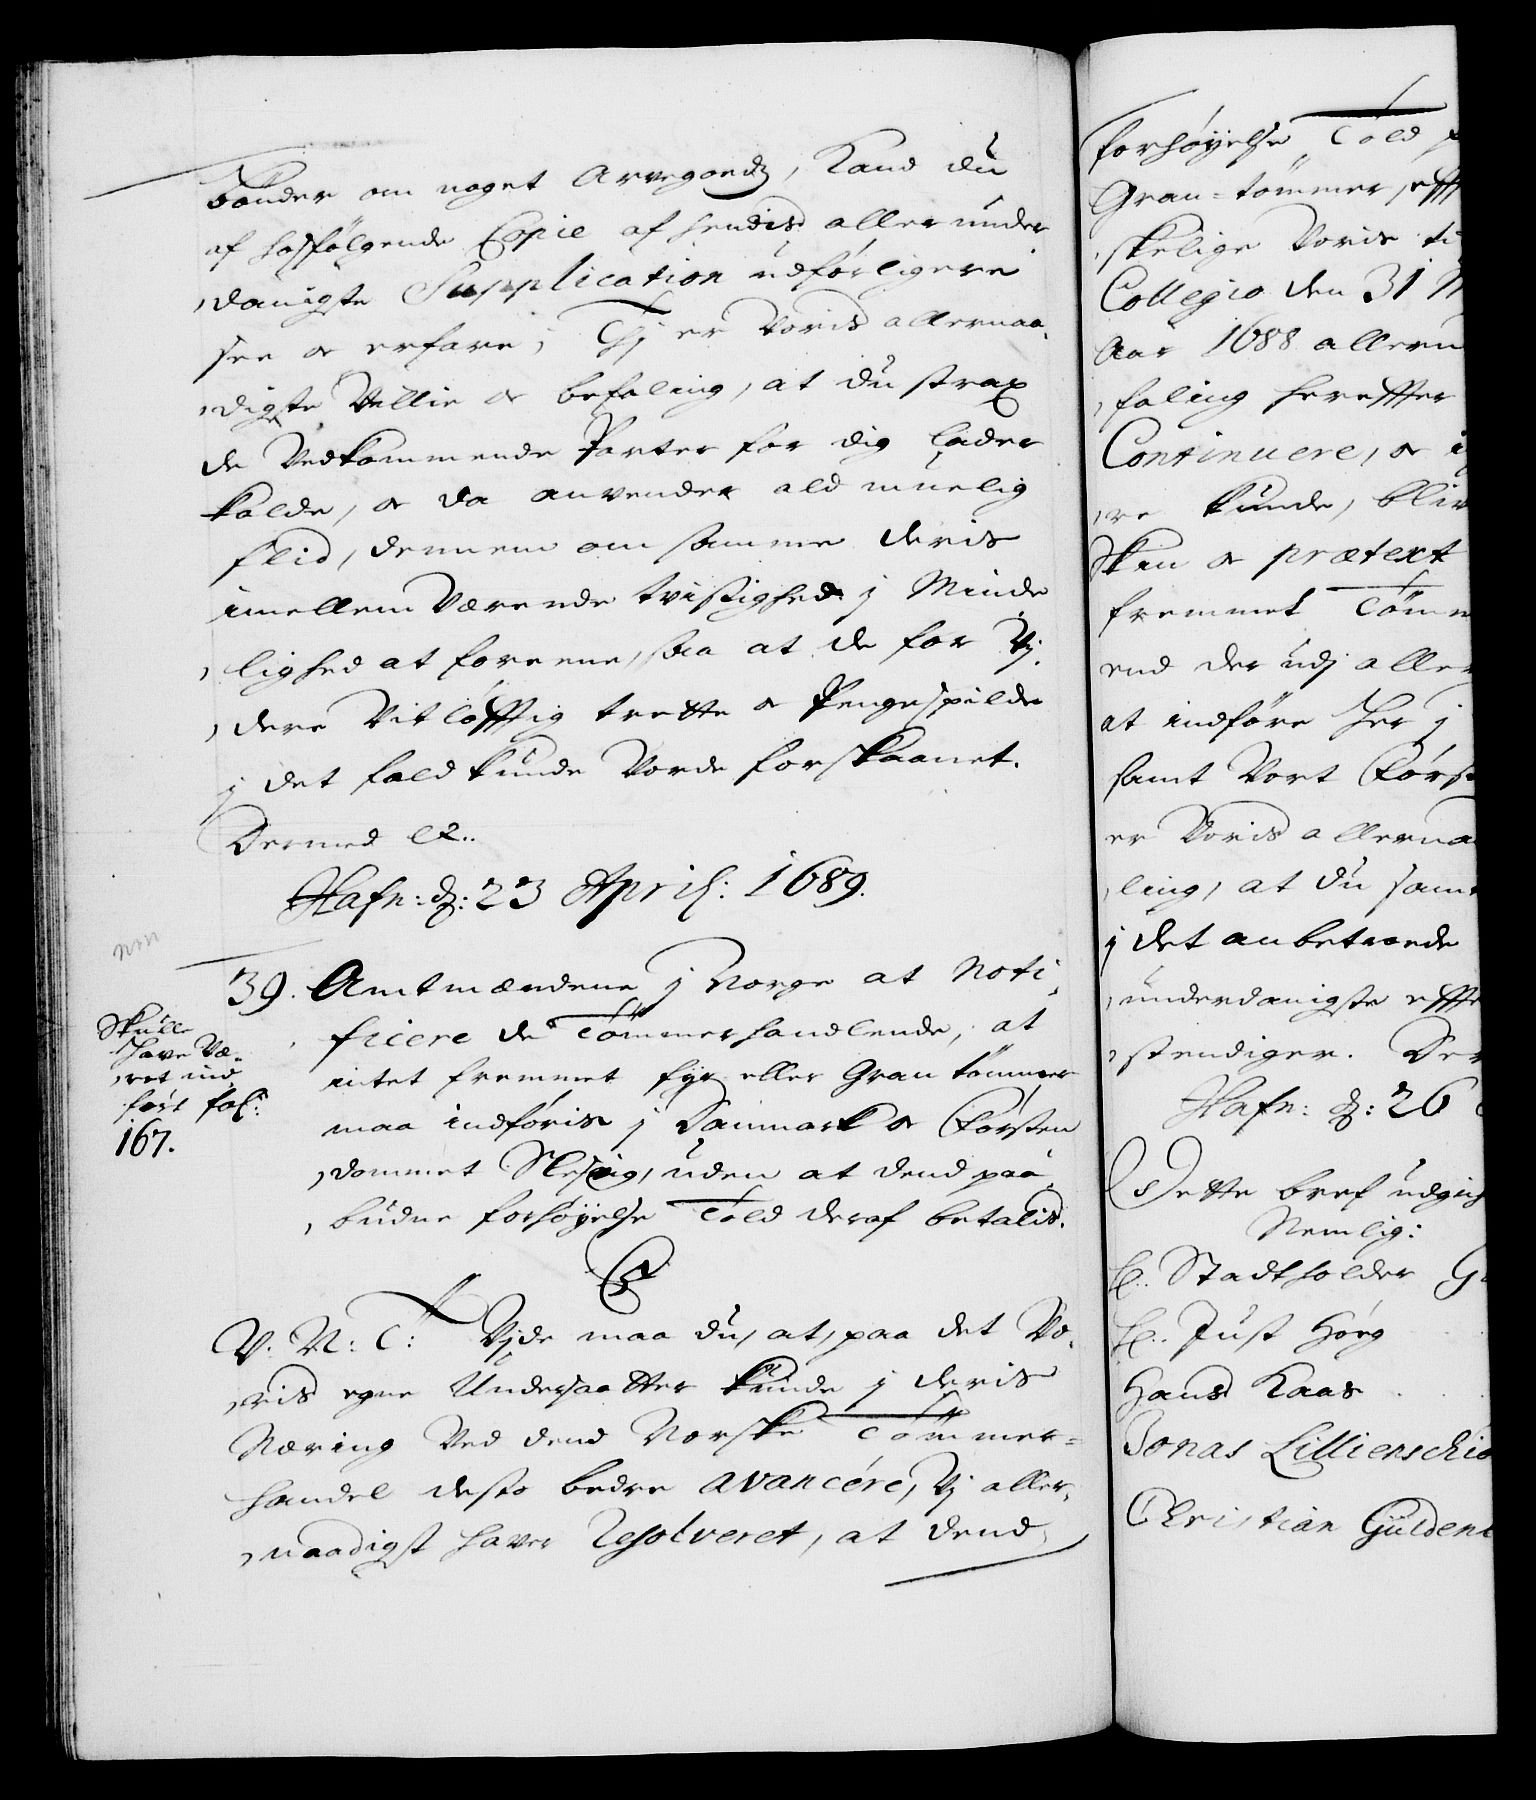 bönder om noget Arvegoedz, Kand du
af hosfølgende Copie af hendis aller under,
,danigste Supplication udførligere
see oc erfare; Thj er Voris allernaa,
,digste Villie oc befaling, at du strax
de Vedkommende Parter for dig lader
kalde, oc da anvender ald muelig
flid, dennem om samme deris
imellem Værende tvistighed j Minde
,lighed at foreene, saa at de for Vj,
,dere Vitløfftig trette oc Pengespilde
j det fald kunde Vorde forskaanet.
Dermed etc.
Hafn: d: 23 April: 1689.
39. Amtmændene j Norge at Noti,
,ficere de Tømmerhandlende, at
intet fremmet fyr eller Gran tømmer
maa indføris j Danmark oc Førsten
,dommet Slesvig, uden at dend paa,
,budne forhøyelse Told deraf betalis.
Skulle
have Væ,
,ret ind,
ført fol:
167.
C5
V. N: T: Vjde maa du, at, paa det Vo,
,ris egne Undersaatter kunde j deris
Næring Ved dend Norske Tømmer=
handel desto bedre avancére, Vj aller,
,naadigst haver Resolveret, at dend
forhøyelse Told
Gran=tømmer, eff
,skelige Voris ti
Collegio den 31 M
Aar 1688 allern
,faling hereffter
Continuere, oc
,re kunde, bliv
Skin oc prætext
fremmet Tömm
end der udj aller
at indføre her j
samt Vort Førs
er Voris allerna
,ling, at du sam
j det anbetroede
,underdanigste effte
,stendiger. Der
Hafn: d: 26
Dette bref udgik
Nemlig:
H. Stadtholder G
H. Just Høeg
Hans Kaas
Jonas Lillienschio
Christian Güldenl